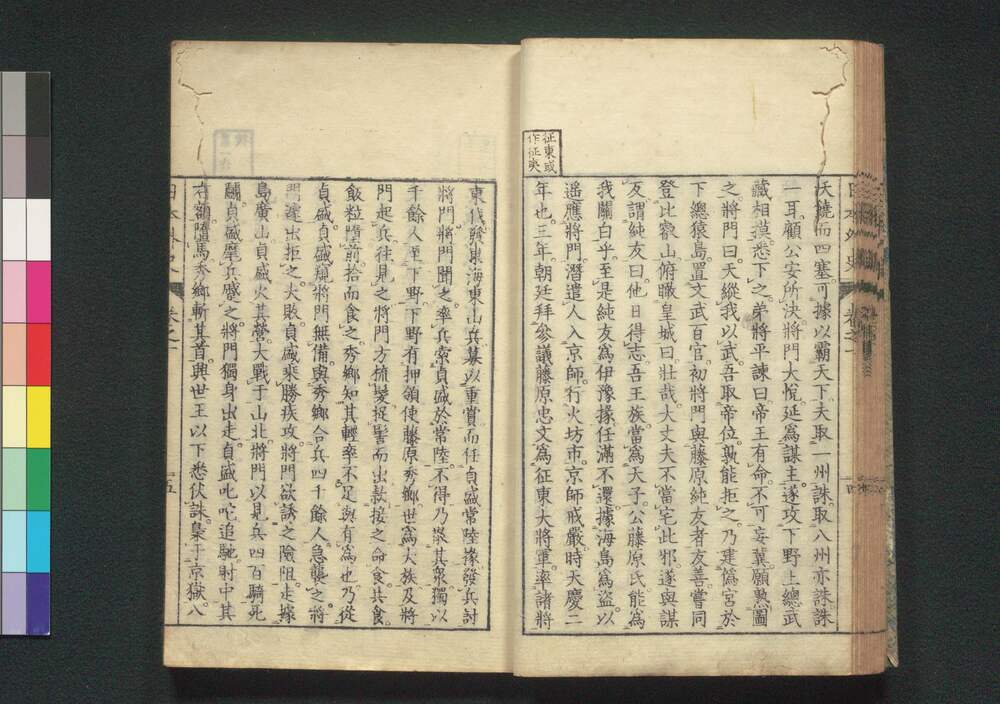 征東或
作征夷
沃饒而四塞可據以霸天下夫取一州誅取八州亦誅誅
一耳顧公安所決將門大悅延爲謀主遂攻下野上總武
藏相摸悉下之弟將平諫曰帝王有命不可妄冀願熟圖
之將門曰天縱我以武吾取帝位孰能拒之乃建僞宮於
下總猿島置文武百官初將門與藤原純友者友善嘗同
登比叡山俯瞰皇城曰壯哉大丈夫不當宅此邪遂與謀
反謂純友曰他日得志吾王族當爲天子公藤原氏能爲
我關白乎至是純友爲伊豫掾任滿不還據海島爲盜以
遙應將門潛遣人入京師行火坊市京師戒嚴時天慶二
年也三年朝廷拜參議藤原忠文爲征東大將軍率諸將
東伐發東海東山兵募以重賞而任貞盛常陸掾發兵討
將門將門聞之率兵索貞盛於常陸不得乃散其衆獨以
千餘人至下野下野有押領使藤原秀鄉世爲大族及將
門起兵往見之將門方梳髮捉髻而出款接之命食共食
飯粒墮前拾而食之秀鄉知其輕率不足與有爲也乃從
貞盛貞盛窺將門無備與秀鄉合兵四千餘人急襲之將
門遽出拒之大敗貞盛乘勝疾攻將門欲誘之險阻走據
島廣山貞盛火其營大戰于山北將門以見兵四百騎死
鬪貞盛麾兵蹙之將門獨身出走貞盛叱咤追馳射中其
右額墮馬秀鄉斬其首興世王以下悉伏誅梟于京獄八